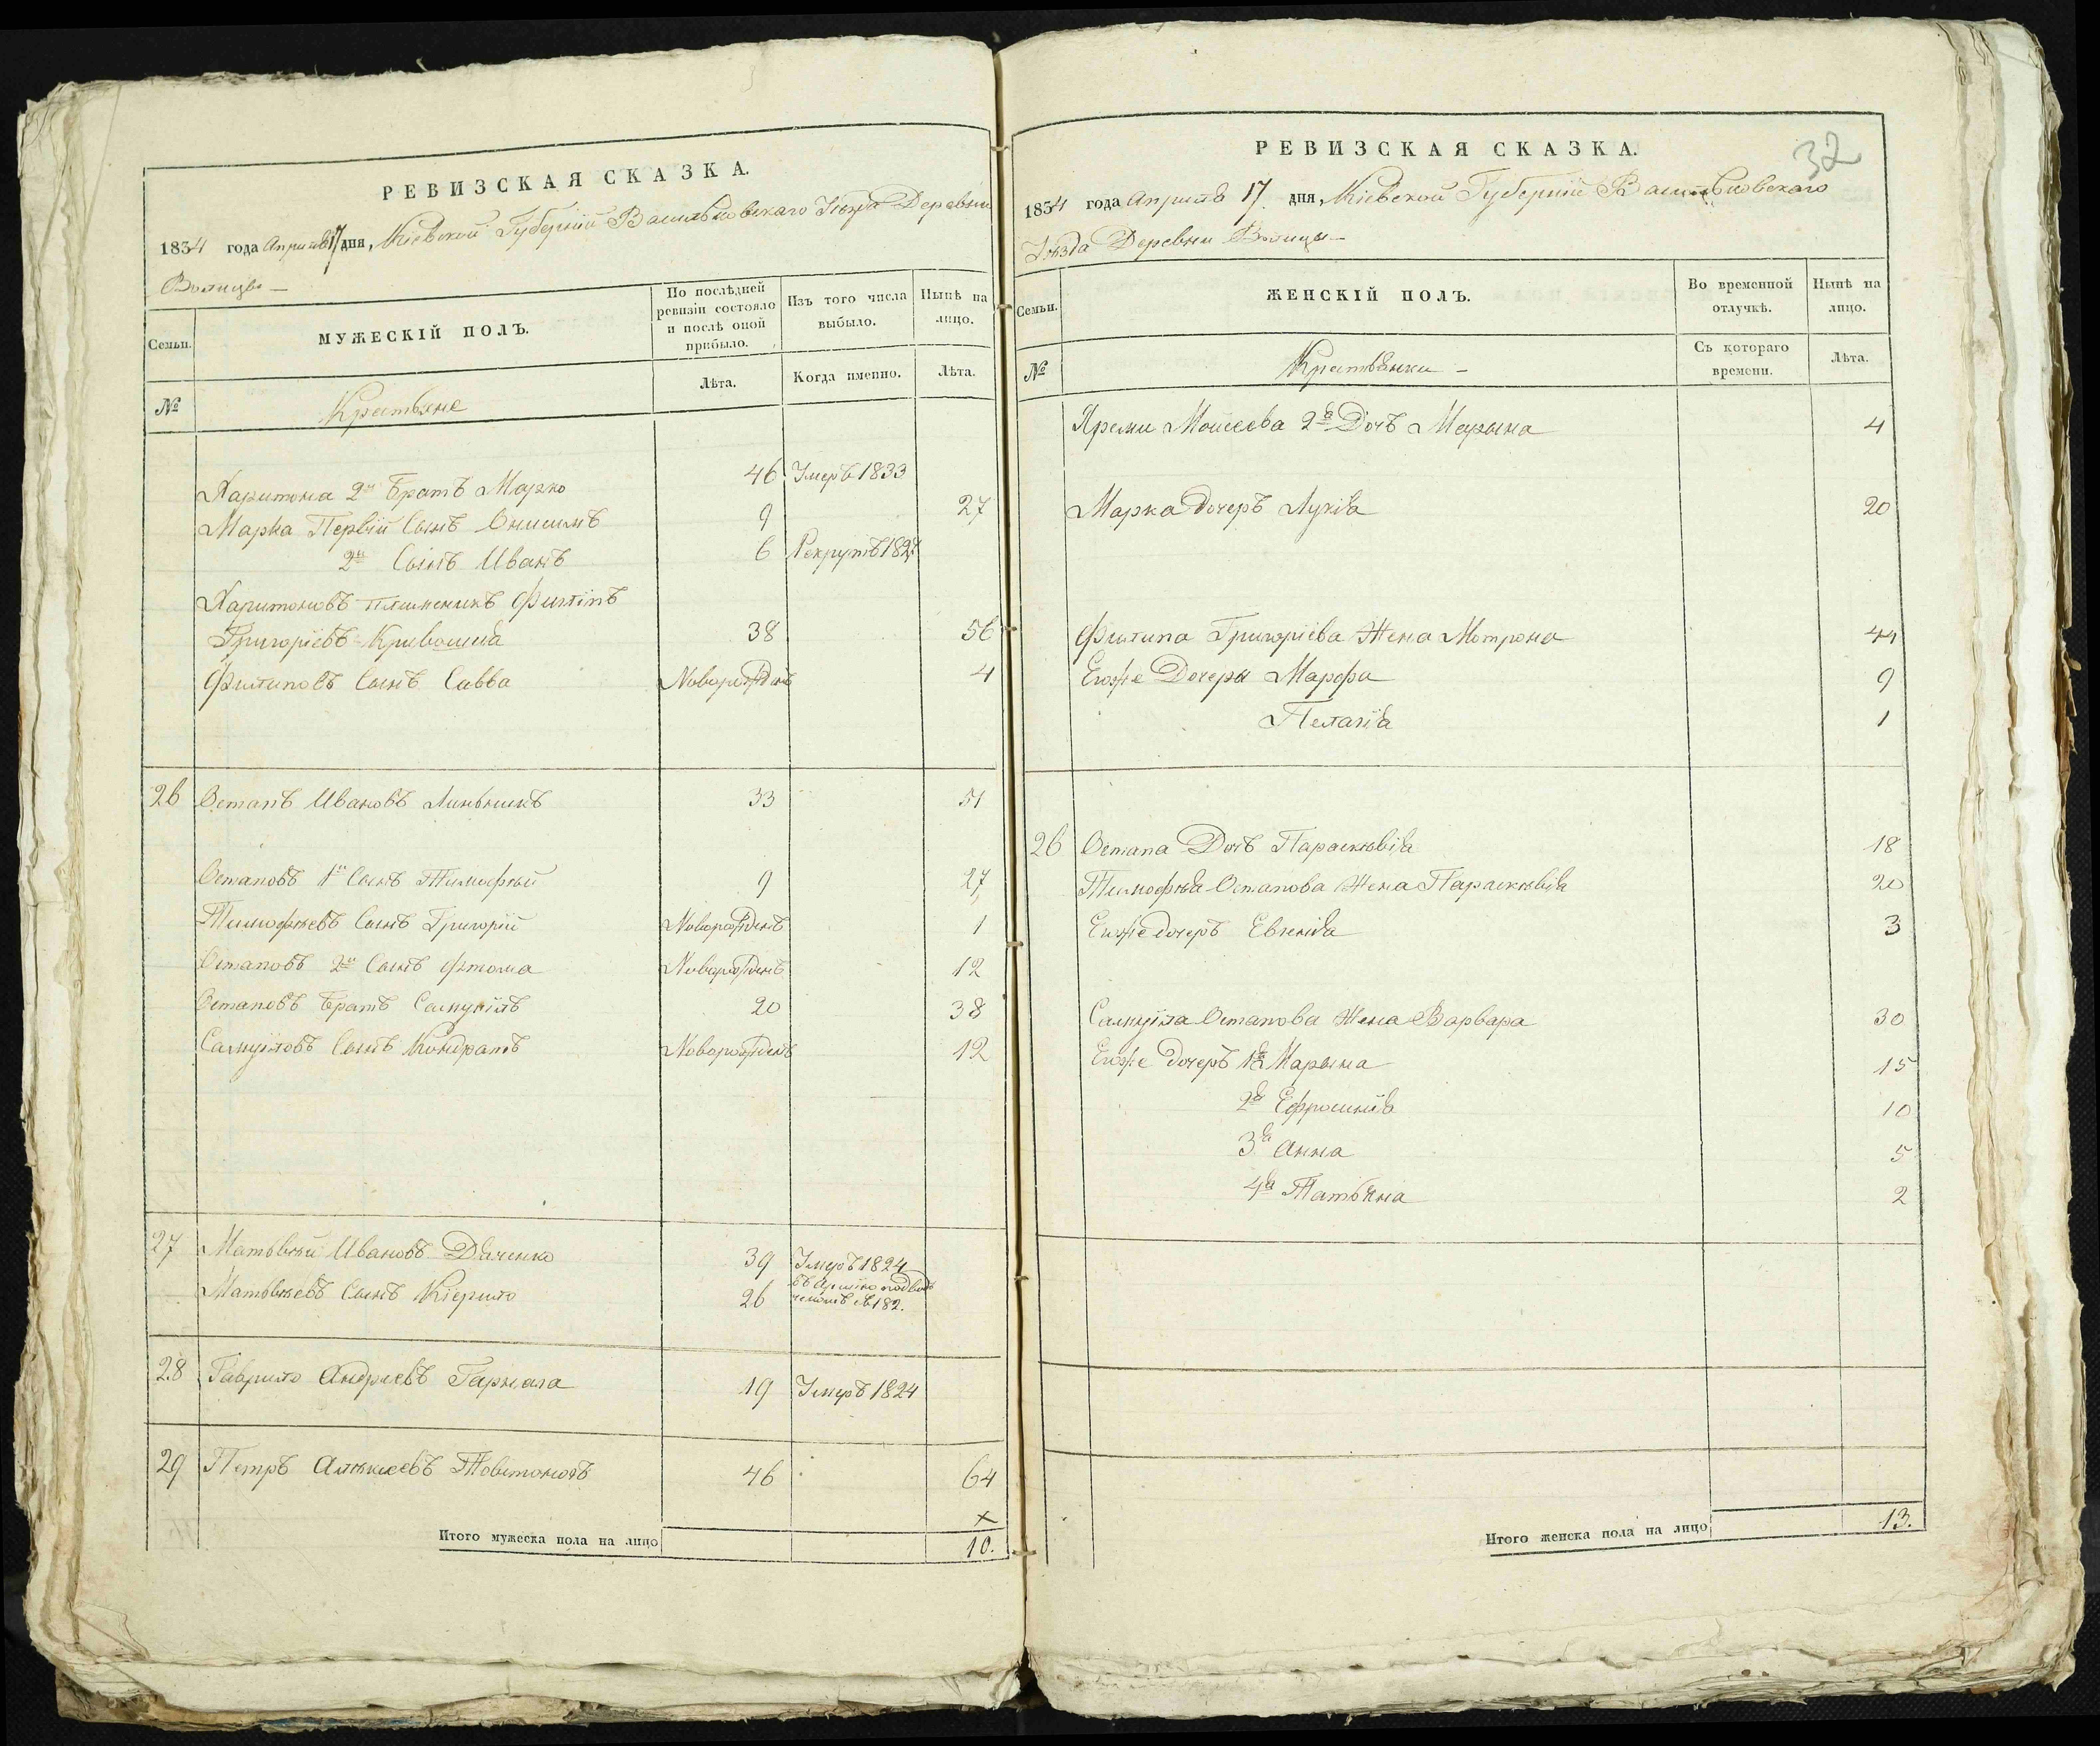 РЕВИЗСКАЯ СКАЗКА.
1834 года Априля 17 дня, Кіевской Губерніи Васильковскаго Уѣзда Деревни
Волицы —
Семьи.
МУЖЕСКІЙ ПОЛЪ.
По послѣдней ревизіи состояло и послѣ оной прибыло.
Изъ того числа выбыло.
Нынѣ на лицо.
№
Крестьяне
Лѣта.
Когда именно.
Лѣта.
Харитона 2й Братъ Марко 46 Умеръ 1833
Марка Первый Сынъ Онисимъ 9 27
2й Сынъ Иванъ 6 Рекрутъ
Харитоновъ племеникъ Филіпъ
Григоріевъ Кривошія 38 56
Филиповъ Сынъ Савва Новорожденъ 4
26 Остапъ Ивановъ Линникъ 33 51
Остаповъ 1й Сынъ Тимофѣй 9 27
Тимофѣевъ Сынъ Григорій Новорожденъ 1
Остаповъ 2й Сынъ Фтома Новорожденъ 12
Остаповъ Братъ Самуиль 20 38
Самуйловъ Сынъ Кондратъ Новорожденъ 12
27 Матьвѣй Ивановъ Дяченко 39 Умеръ 1824
Матьвѣевъ Сынъ Кіерило 26 182.
28 Гаврило Андреевъ Гармаза 19 Умеръ 1824
29 Петръ Алѣксеевъ 46 64
Итого мужеска пола на лицо 10.
32
РЕВИЗСКАЯ СКАЗКА.
1834 года Априля 17 дня, Кіевской Губерніи Васильковскаго
Уѣзда Деревни Волицы —
Семьи.
ЖЕНСКІЙ ПОЛЪ.
Во временной отлучкѣ.
Нынѣ на лицо.
№
Крестьянки —
Съ котораго времени.
Лѣта.
Яреми Моисеева 2я Дочъ Марына 4
Марка Дочеръ Лукія 20
Филипа Григоріева Жена Мотрона 44
Егоже Дочеры Марфа 9
Пелагія 1
26 Остапа Дочъ Параскѣвія 18
Тимофѣя Остапова Жена Параскѣвія 20
Егоже дочеръ Евгенія 3
Самуйла Остапова Жена Варвара 30
Егоже дочеръ 1я Марына 15
2я Ефросинія 10
3я Анна 5
4я Татьяна 2
Итого женска пола на лицо 13.